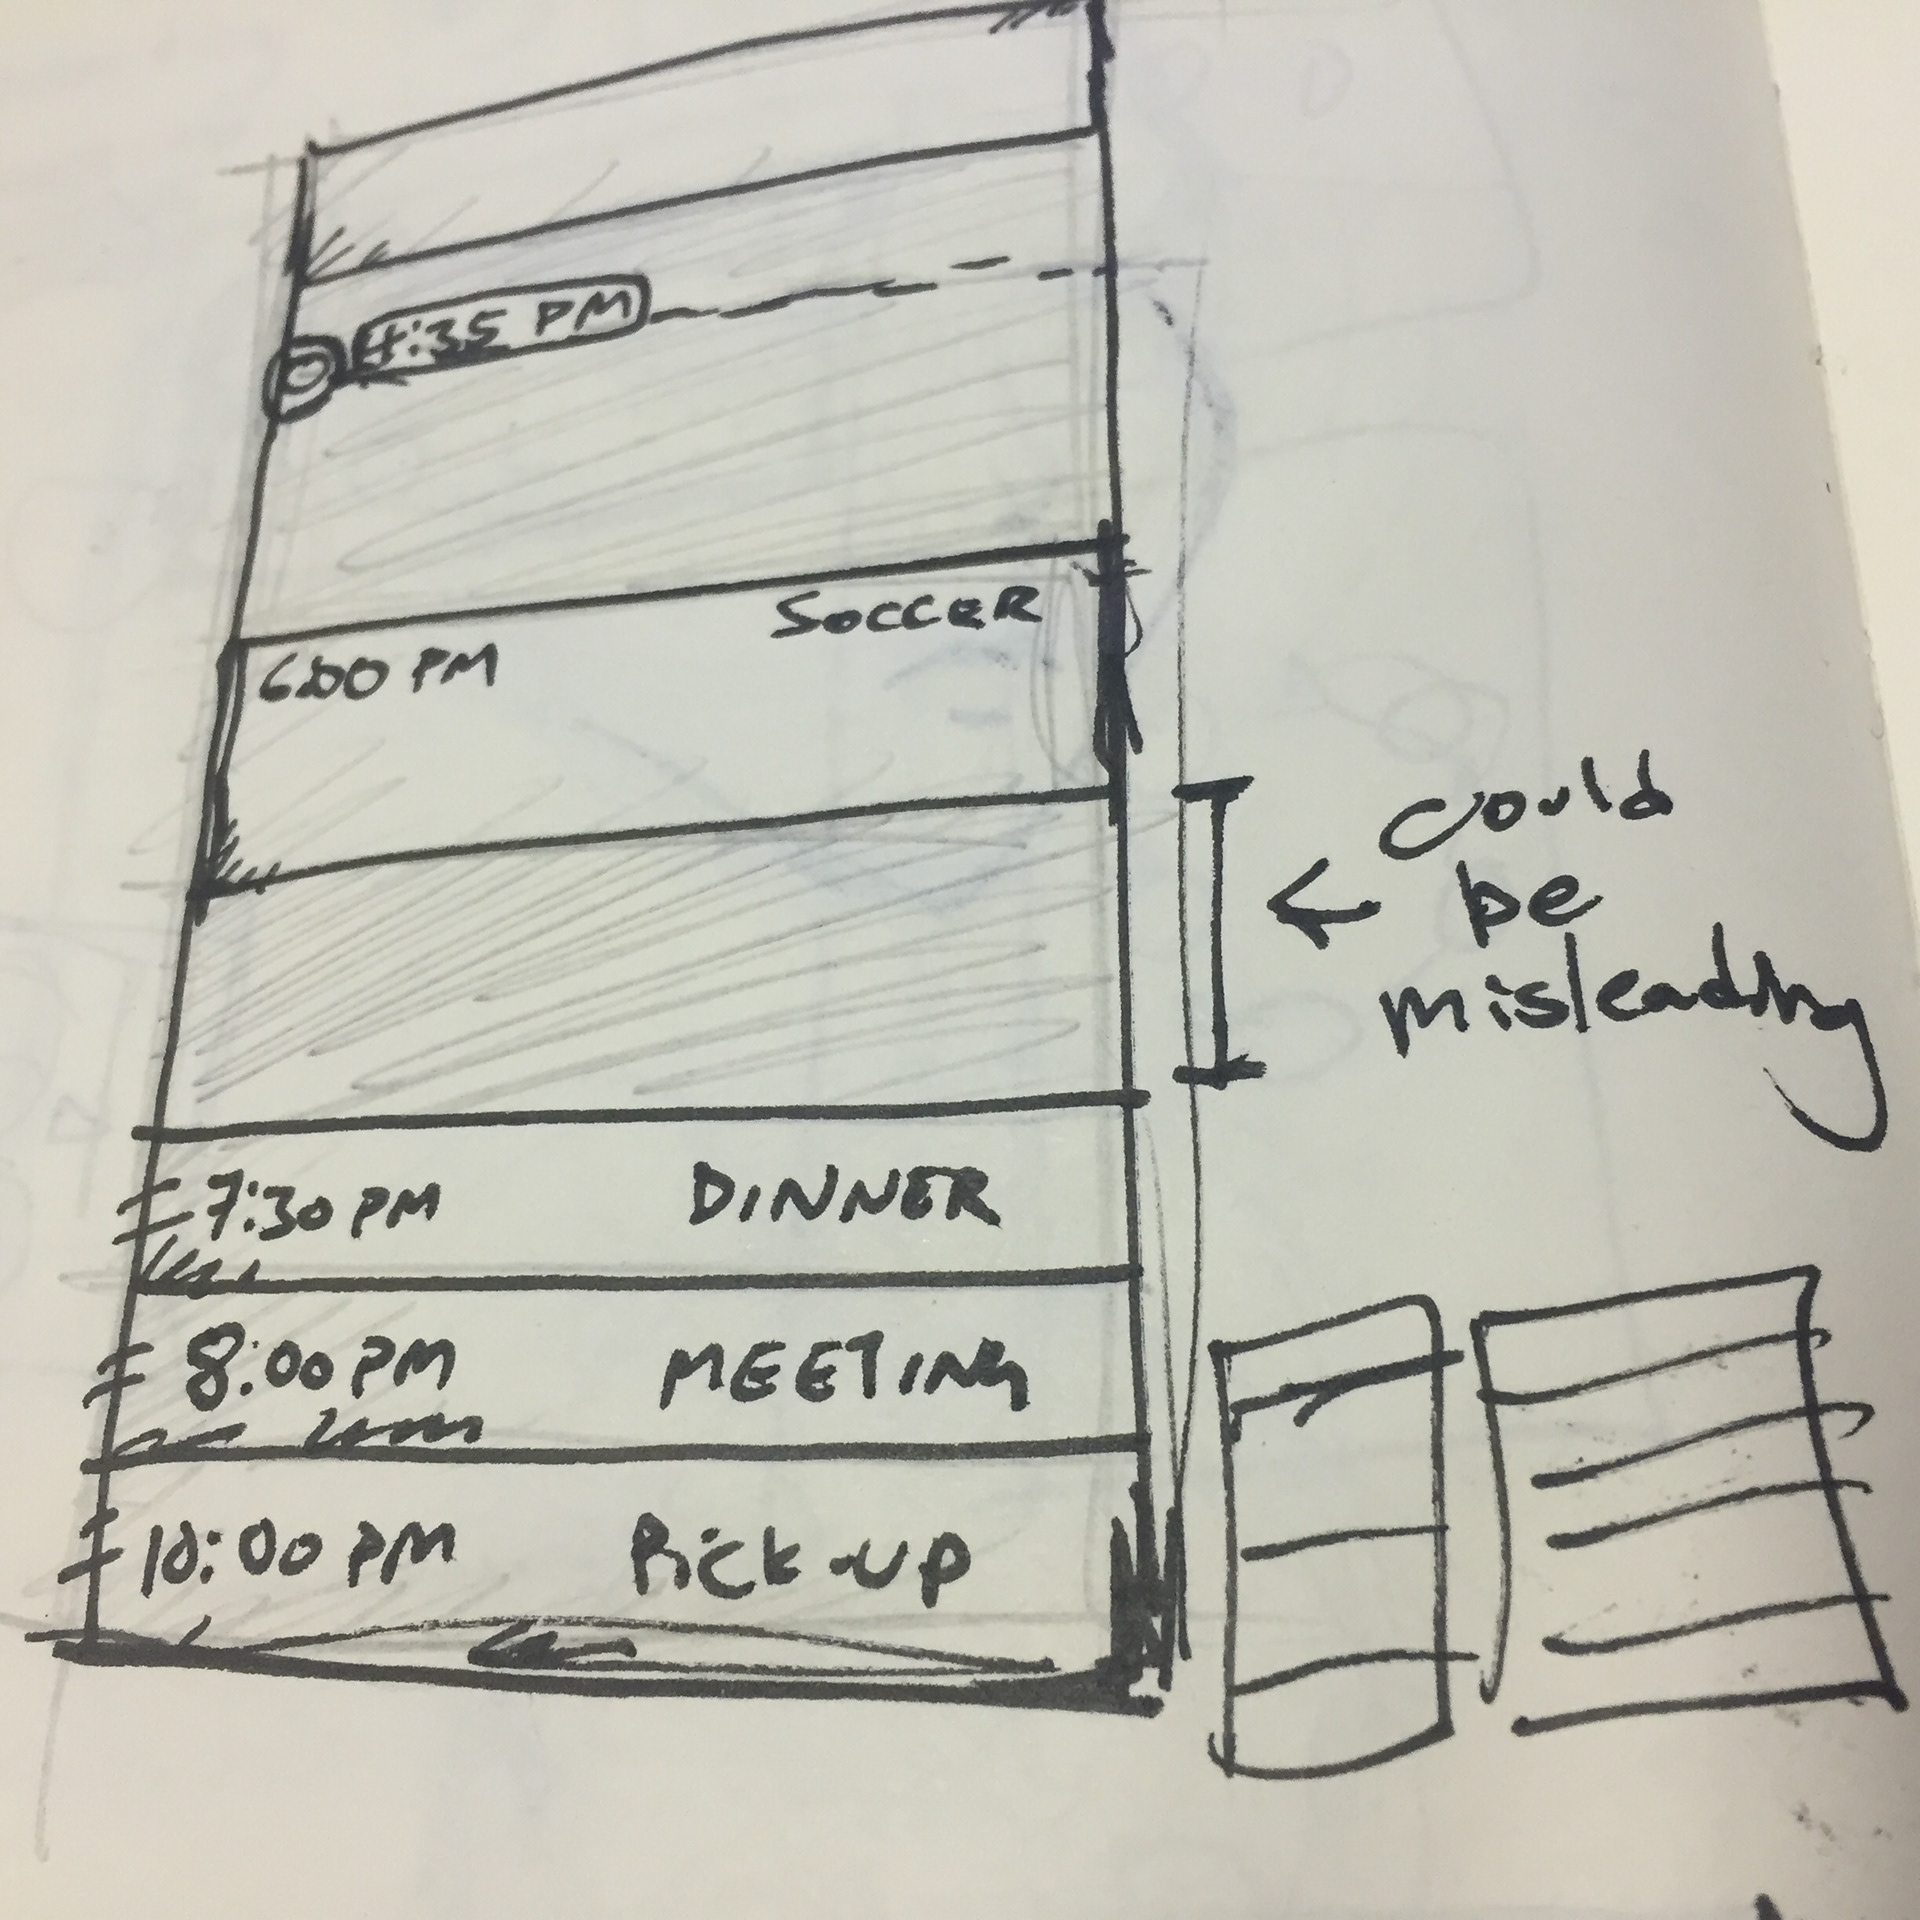 4:35 PM
SOCCER
6:00 PM
could
be
misleading
7:30 PM DINNER
8:00 PM MEETING
10:00 PM Pick-up